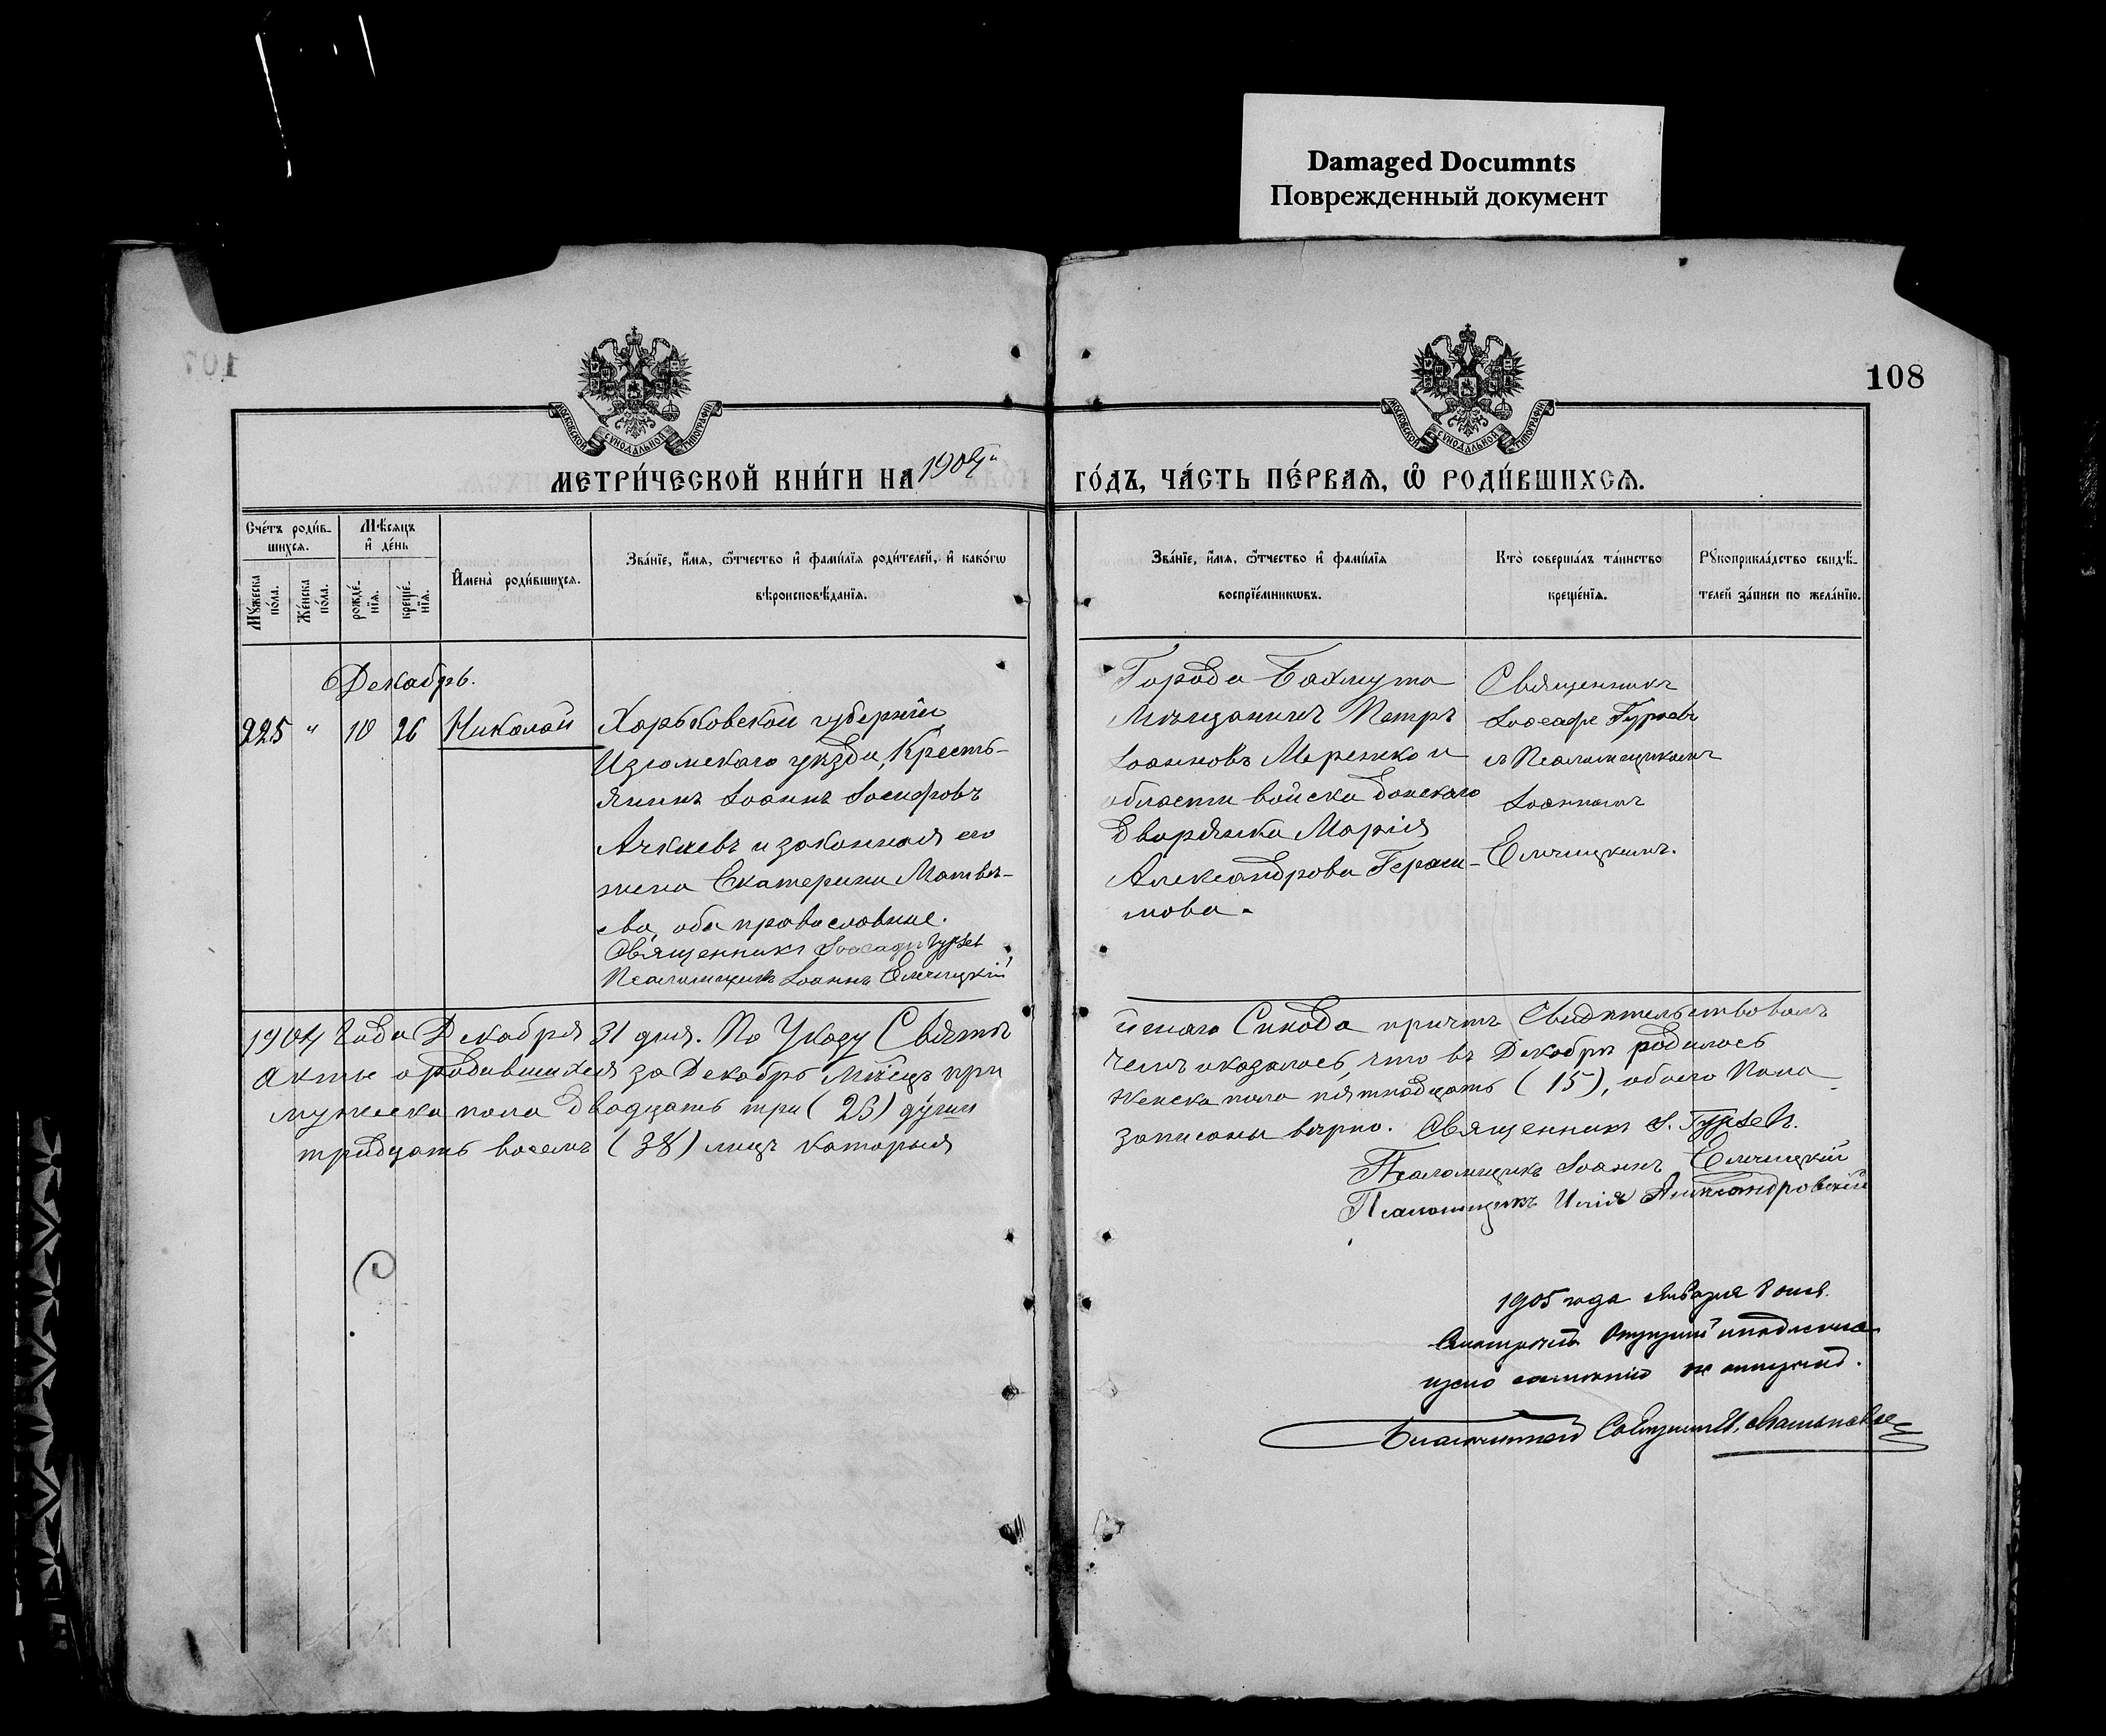 Damaged Documnts
Поврежденный документ
107
108
МОСКОВСКОЙ СѴНОДАЛЬНОЙ ТИПОГРАФІИ
МОСКОВСКОЙ СѴНОДАЛЬНОЙ ТИПОГРАФІИ
МЕТРИ́ЧЕСКОЙ КНИ́ГИ НА 1904й
ГО́ДЪ, ЧА́СТЬ ПЕ́РВАѦ, Ѡ҆ РОДИ́ВШИХСѦ.
Сче́тъ роди́в-
шихсѧ.
Мꙋ́жеска по́ла.
Же́нска по́ла.
Мѣ́сѧцъ
и҆ де́нь
рожде́-
нїѧ.
креще́-
нїѧ.
И҆мена̀ роди́вшихсѧ.
Зва́нїе, и҆́мѧ, ѻ҆́тчество и҆ фами́лїѧ роди́телей, и҆ како́гѡ
вѣроисповѣ́данїѧ.
Зва́нїе, и҆́мѧ, ѻ҆́тчество и҆ фами́лїѧ
воспрїе́мникѡвъ.
Кто̀ соверша́лъ та́инство
креще́нїѧ.
Рꙋкоприкла́дство свидѣ́-
телей за́писи по жела́нїю.
Декабрь.
225 " 10 26 Николай
Харьковской губерніи
Изюмскаго уѣзда, Кресть-
янинъ Іоаннъ Іосифовъ
и законная его
жена Екатерина Матвѣ-
ева, оба православные.
Священникъ Іоасафъ Гурьевъ
Псаломщикъ Іоаннъ
Города Бахмута
Мѣщанинъ Петръ
Іоанновъ и
области войска донскаго
Дворянка Марія
Александрова Гераси-
мова.
Священникъ
Іоасафъ Гурьевъ
съ Псаломщикомъ
Іоанномъ
1904 Года Декабря 31 дня. По Указу Святѣ
йшаго Синода причтъ Свидѣтельствовалъ
акты о родившихся за Декабрь Мѣсяцъ при
чемъ оказалось, что въ Декабрѣ родилось
мужеска пола двадцать три (23) души
женска пола пятнадцать (15), обоего пола
тридцать восемь (38) лицъ которыя
записаны вѣрно. Священникъ І. Гурьевъ.
Псаломщикъ Іоаннъ
Псаломщикъ Илія Александровскій
1905 года Января 8 дня.